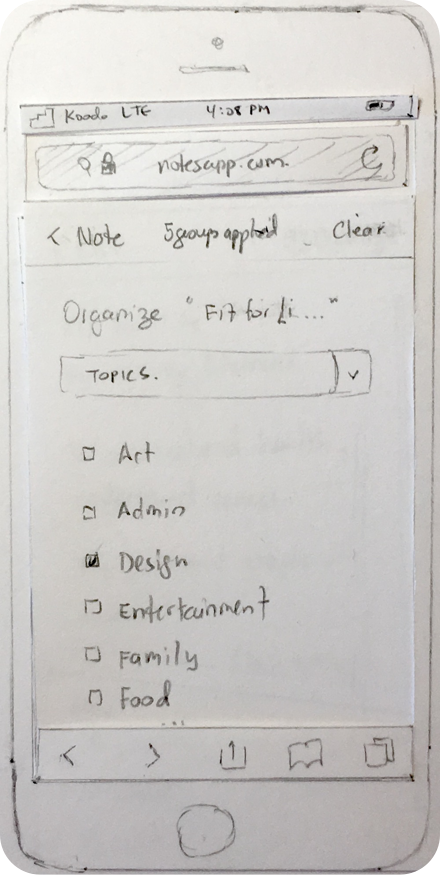 Koodo LTE 4:08 PM
notesapp.com
< Note 5 groups applied Clear
Organize "Fit for Li..."
TOPICS.
Art
Admin
Design
Entertainment
Family
Food
...